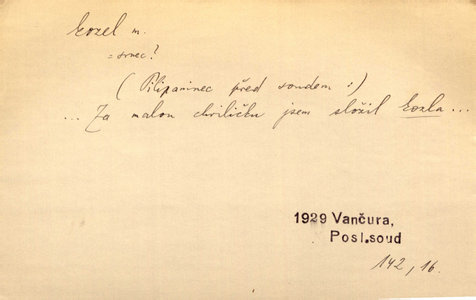 kozel m.
= srnec?
(Pilipaninec před soudem:)
... Za malou chviličku jsem složil kozla ...
1929 Vančura,
Posl.soud
142, 16.